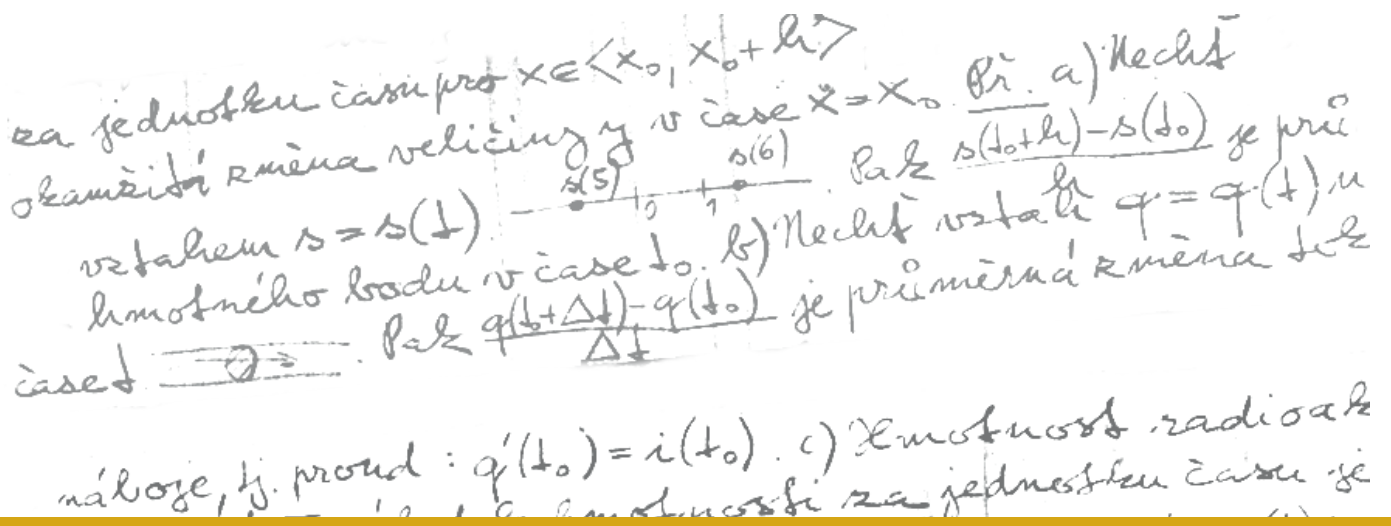 za jednotku času pro x∈<x₀, x₀+h>
okamžitá změna veličiny y v čase x=x₀. Př. a) Nechť
vztahem s=s(t) s(5) 0 1 s(6). Pak (s(t₀+h)-s(t₀))/h je prů
hmotného bodu v čase t₀. b) Nechť vztah q=q(t) u
čase t. Pak (q(t₀+Δt)-q(t₀))/Δt je průměrná změna tok
náboje, tj. proud: q'(t₀)=i(t₀). c) Hmotnost radioak
hmotnosti za jednotku času je